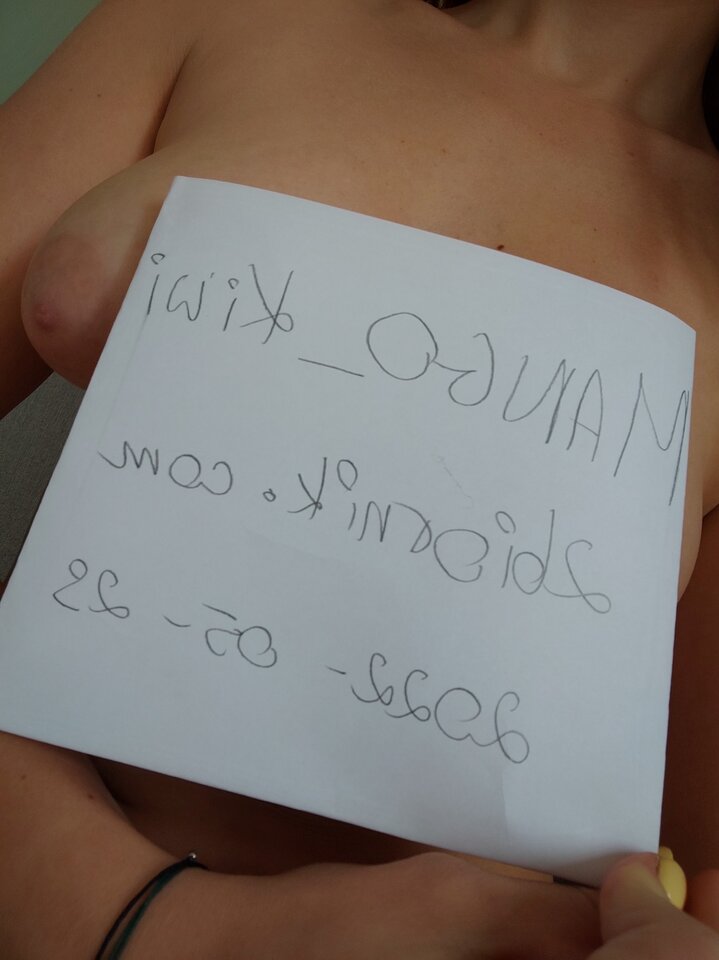 MANGO_Kiwi
zbiornik.com
2022-05-22